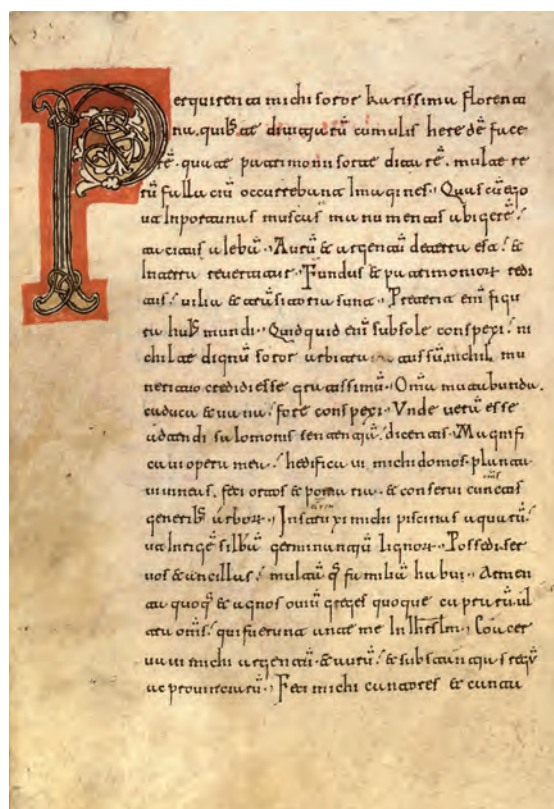 Perquirenti michi soror karissima florenti
na, quibꝰ te diuitiarū cumulis heredē face
rē. qua te patrimonii sorte ditarē. multe re
rū fallaciū occurrebant Imagines. Quas cū ego
ut Inportunas muscas manu mentis abigerē
tacitus aiebā. Aurū & argentū de terra est. &
Interra reuertitur. Fundus & patrimonioꝝ redi
tus. uilia & transitoria sunt. Preterit enī figu
ra huiꝰ mundi. Quidquid enī subsole conspexi. ni
chil te dignū soror arbitratus sū, nichil mu
neri tuo credidi esse gratissimū. Omīa mutabunda.
caduca & uana fore conspexi. Vnde uerū esse
adtendi salomonis sententiā dicentis. Magnifi
caui opera mea. hedificaui michi domos. planta
ui uineas. feci ortos & pomaria. & conseui cunctis
generibꝰ arborꝝ. Instruxi michi piscinas aquarū.
ut Inrigē silbā germinantiū lignorꝝ. Possedi ser
uos & ancillas. multāq̄ familiā habui. Armen
ta quoq̄ & agnos ouiū greges quoque caprarū. ul
tra omīs qui fuerunt ante me In Ihrslm. Coacer
uaui michi argentū & aurū. & substantias regū
ac prouinciarū. Feci michi cantores & canta